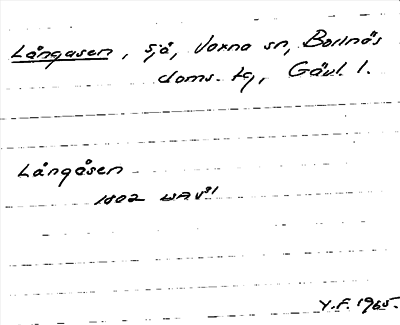 Långasen, sjö, Voxna sn, Bollnäs
doms. tg, Gävl. l.
Långåsen
1802 LAVs1
Y.F. 1965.